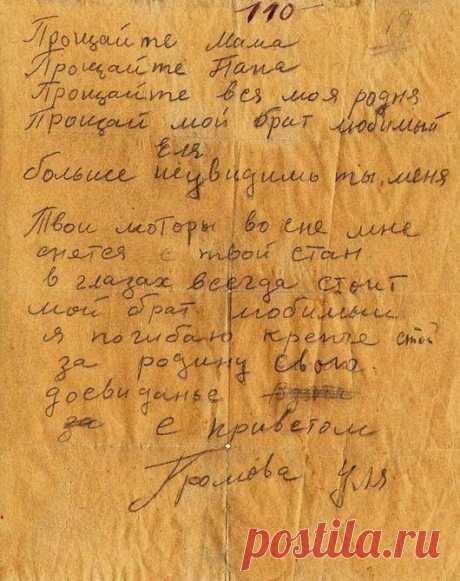 110
Прощайте Мама
Прощайте Папа
Прощайте вся моя родня
Прощай мой брат любимый
Еля
больше неувидишь ты, меня
Твои моторы во сне мне
снется с твой стан
в глазах всегда стоит
мой брат любимый
я погибаю крепче стой
за родину свою.
досвиданье
за с приветом
Громова Уля
postila.ru